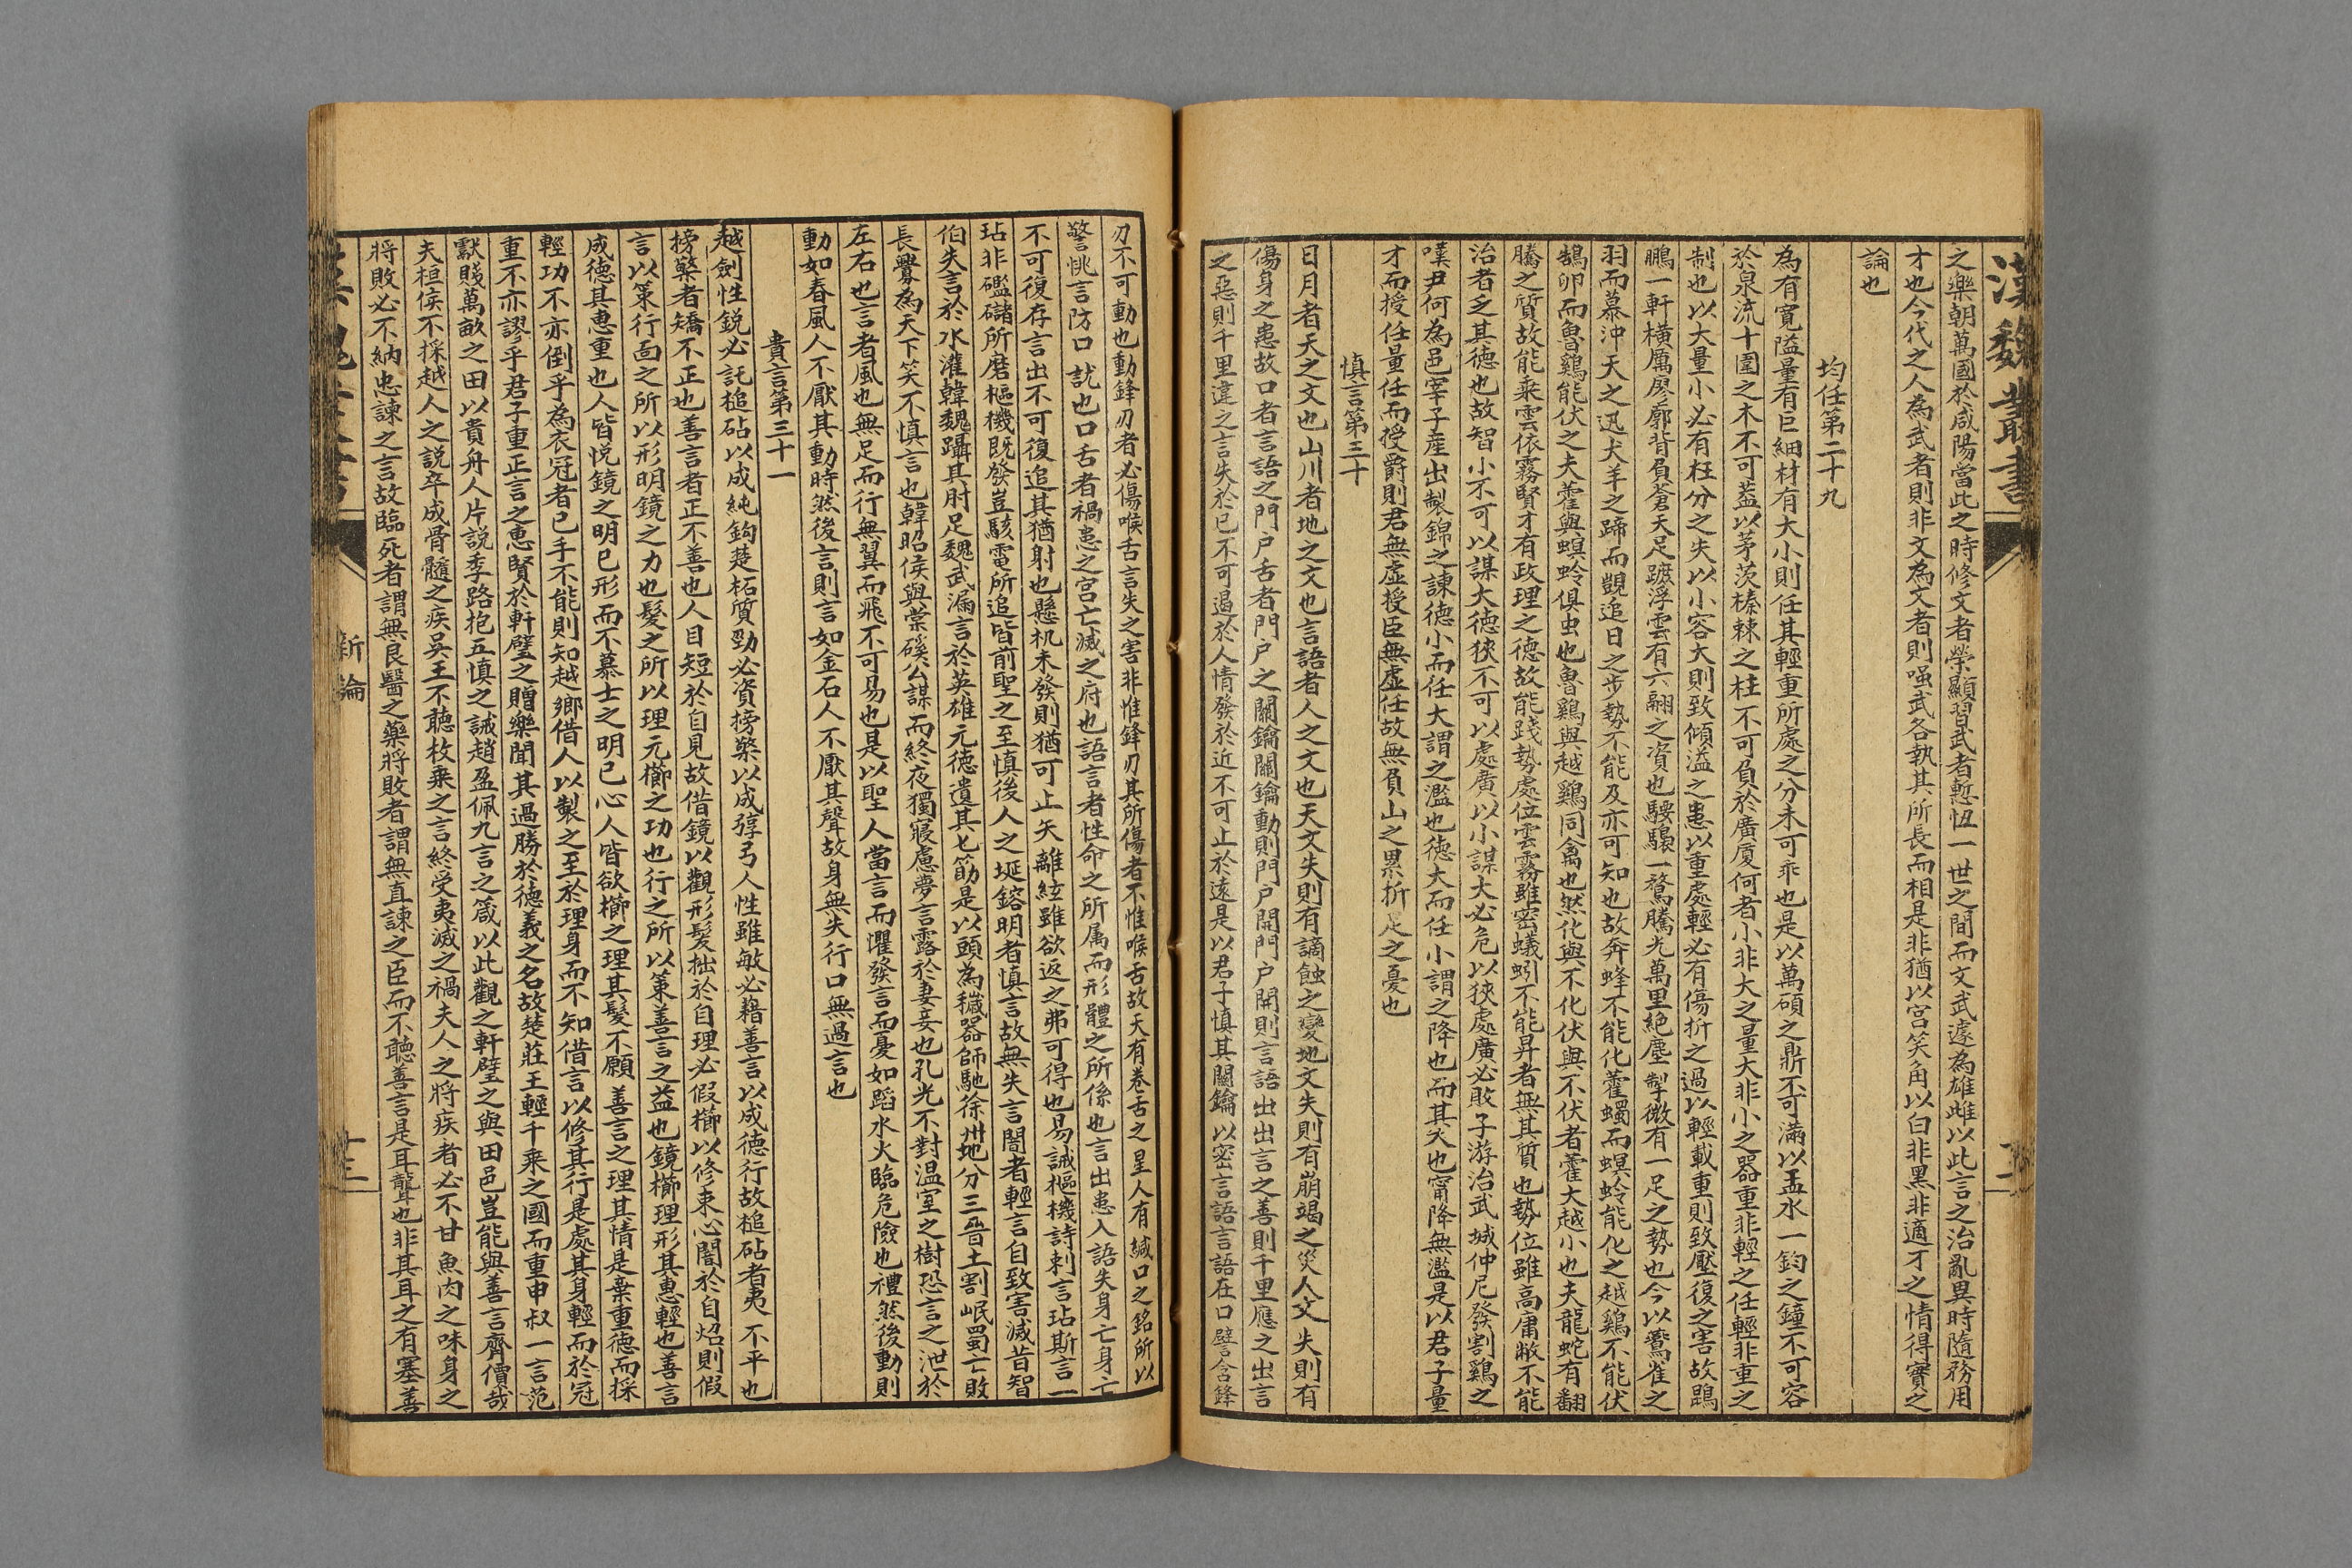 漢魏叢書
之樂朝萬國於咸陽當此之時修文者榮顯習武者慙恧一世之間而文武遞為雄雌以此言之治亂異時隨務用
才也今代之人為武者則非文為文者則嗤武各執其所長而相是非猶以宮笑角以白非黑非適才之情得實之
論也
均任第二十九
為有寬隘量有巨細材有大小則任其輕重所處之分未可乖也是以萬碩之鼎不可滿以盂水一鈞之鐘不可容
於泉流十圍之木不可葢以茅茨榛棘之柱不可負於廣厦何者小非大之量大非小之器重非輕之任輕非重之
制也以大量小必有枉分之失以小容大則致傾溢之患以重處輕必有傷折之過以輕載重則致壓復之害故鵾
鵬一軒橫厲廖廓背負蒼天足蹍浮雲有六翮之資也騕騕一騖騰光萬里絶塵掣徹有一足之勢也今以鷰雀之
羽而慕沖天之迅犬羊之蹄而覬追日之步勢不能及亦可知也故奔蜂不能化藿蠋而螟蛉能化之越鷄不能伏
鵠卵而魯鷄能伏之夫藿與螟蛉俱虫也魯鷄與越鷄同禽也然化與不化伏與不伏者藿大越小也夫龍蛇有翻
騰之質故能乘雲依霧賢才有政理之德故能踐勢處位雲霧雖密蟻蚓不能昇者無其質也勢位雖高庸敝不能
治者乏其德也故智小不可以謀大德狹不可以處廣以小謀大必危以狹處廣必敗子游治武城仲尼發割鷄之
嘆尹何為邑宰子産出製錦之諫德小而任大謂之濫也德大而任小謂之降也而其失也甯降無濫是以君子量
才而授任量任而授爵則君無虛授臣無虛任故無負山之累折足之憂也
慎言第三十
日月者天之文也山川者地之文也言語者人之文也天文失則有謫蝕之變地文失則有崩竭之災人文失則有
傷身之患故口者言語之門户舌者門户之關鑰關鑰動則門户開門户開則言語出出言之善則千里應之出言
之惡則千里違之言失於已不可遏於人情發於近不可止於遠是以君子慎其關鑰以密言語言語在口譬含鋒
刃不可動也動鋒刃者必傷喉舌言失之害非惟鋒刃其所傷者不惟喉舌故天有卷舌之星人有緘口之銘所以
警恌言防口訧也口舌者禍患之宮亡滅之府也語言者性命之所属而形體之所係也言出患入語失身亡身亡
不可復存言出不可復追其猶射也懸机未發則猶可止矢離絃雖欲返之弗可得也易誡樞機詩刺言玷斯言一
玷非礛䃴所磨樞機既發豈駭電所追皆前聖之至慎後人之埏鎔明者慎言故無失言闇者輕言自致害滅昔智
伯失言於水灌韓魏躡其肘足魏武漏言於英雄元德遺其匕筯是以頭為穢器師馳徐州地分三晉土割岷蜀亡敗
長釁為天下笑不慎言也韓昭侯與棠磎公謀而終夜獨寢慮夢言露於妻妾也孔光不對温室之樹恐言之泄於
左右也言者風也無足而行無翼而飛不可易也是以聖人當言而懼發言而憂如蹈水火臨危險也禮然後動則
動如春風人不厭其動時然後言則言如金石人不厭其聲故身無失行口無過言也
貴言第三十一
越劍性鋭必託槌砧以成純鈎楚柘質勁必資榜檠以成弴弓人性雖敏必藉善言以成德行故槌砧者夷不平也
榜檠者矯不正也善言者正不善也人目短於自見故借鏡以觀形髮拙於自理必假櫛以修束心闇於自炤則假
言以策行面之所以形明鏡之力也髮之所以理元櫛之功也行之所以策善言之益也鏡櫛理形其惠輕也善言
成德其惠重也人皆悅鏡之明已形而不慕士之明已心人皆欲櫛之理其髮不願善言之理其情是棄重德而採
輕功不亦倒乎為衣冠者已手不能則知越鄉借人以製之至於理身而不知借言以修其行是處其身輕而於冠
重不亦謬乎君子重正言之惠賢於軒璧之贈樂聞其過勝於德義之名故楚莊王輕千乘之國而重申叔一言范
獻賤萬畝之田以貴舟人片説季路抱五慎之誡趙盈佩九言之箴以此觀之軒璧之與田邑豈能與善言齊價哉
夫桓侯不採越人之説卒成骨髓之疾吳王不聽枚乘之言終受夷滅之禍夫人之將疾者必不甘魚肉之味身之
將敗必不納忠諫之言故臨死者謂無良醫之藥將敗者謂無直諫之臣而不聽善言是耳聾也非其耳之有塞善
新論
十三